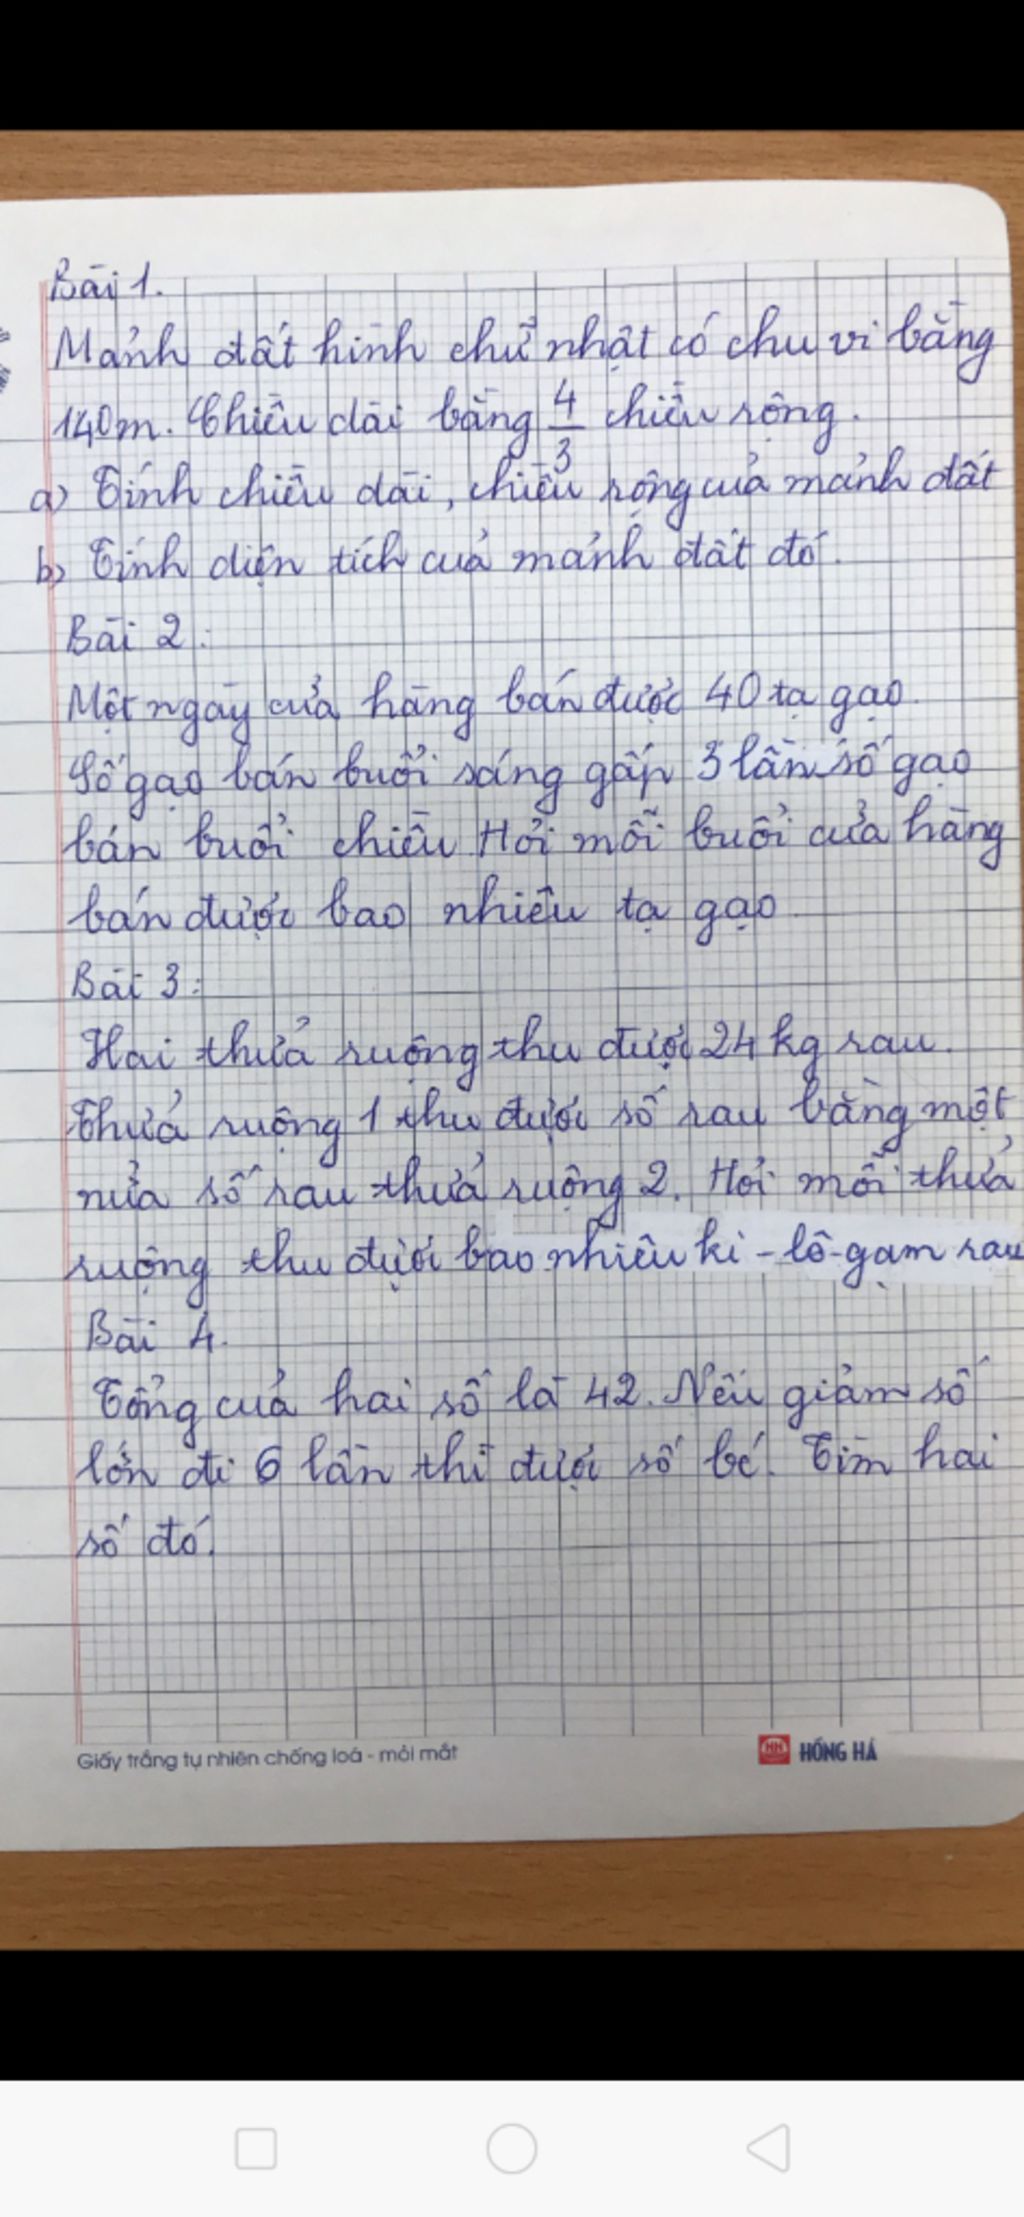 Bài 1.
Mảnh đất hình chữ nhật có chu vi bằng
140m. Chiều dài bằng 4/3 chiều rộng.
a) Tính chiều dài, chiều rộng của mảnh đất
b) Tính diện tích của mảnh đất đó.
Bài 2:
Một ngày cửa hàng bán được 40 tạ gạo.
Số gạo bán buổi sáng gấp 3 lần số gạo
bán buổi chiều. Hỏi mỗi buổi cửa hàng
bán được bao nhiêu tạ gạo
Bài 3:
Hai thửa ruộng thu được 24 kg rau.
Thửa ruộng 1 thu được số rau bằng một
nửa số rau thửa ruộng 2. Hỏi mỗi thửa
ruộng thu được bao nhiêu ki-lô-gam rau
Bài 4.
Tổng của hai số là 42. Nếu giảm số
lớn đi 6 lần thì được số bé. Tìm hai
số đó.
Giấy trắng tự nhiên chống loá - mỏi mắt HỒNG HÀ